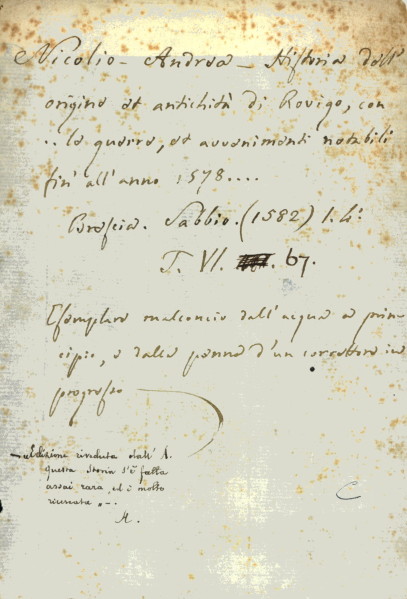 Nicolio - Andrea - Historia dell'
origine et antichità di Rovigo, con
.. le guerre, et avvenimenti notabili
fin' all'anno 1578....
Brescia. Sabbio. (1582) 1. 4:
T. VI. 67.
Esemplare malconcio dall'acqua a prin
cipio, e dalla penna d'un correttore in
progresso
Edizione venduta dall' A.
questa storia s'è fatta
assai rara, ed è molto
ricercata
A.
C